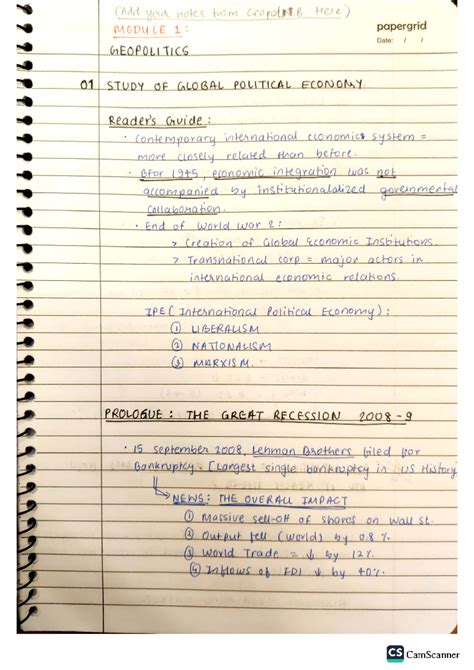 (Add your notes from Geopol NB Here)
papergrid
Date: / /
MODULE 1:
GEOPOLITICS
01 STUDY OF GLOBAL POLITICAL ECONOMY
Reader's Guide:
· Contemporary international economics system =
more closely related than before.
· Bfor 1945, economic integration was not
accompanied by institutionalized governmental
collaboration.
· End of World War 2:
> Creation of Global Economic Institutions.
> Transnational corp = major actors in
international economic relations.
IPE (International Political Economy):
① LIBERALISM
② NATIONALISM
③ MARXISM.
PROLOGUE: THE GREAT RECESSION 2008-9
· 15 september 2008, Lehman Brothers filed for
Bankruptcy. [Largest single bankruptcy in US History]
↳ NEWS: THE OVERALL IMPACT
① Massive sell-off of shares on Wall st.
② Output fell (World) by 0.8 %.
③ World Trade = ↓ by 12%.
④ Inflows of FDI ↓ by 40%.
CS CamScanner